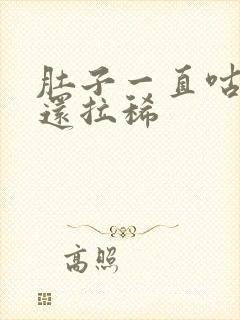 肚子一直咕
還拉稀
高照